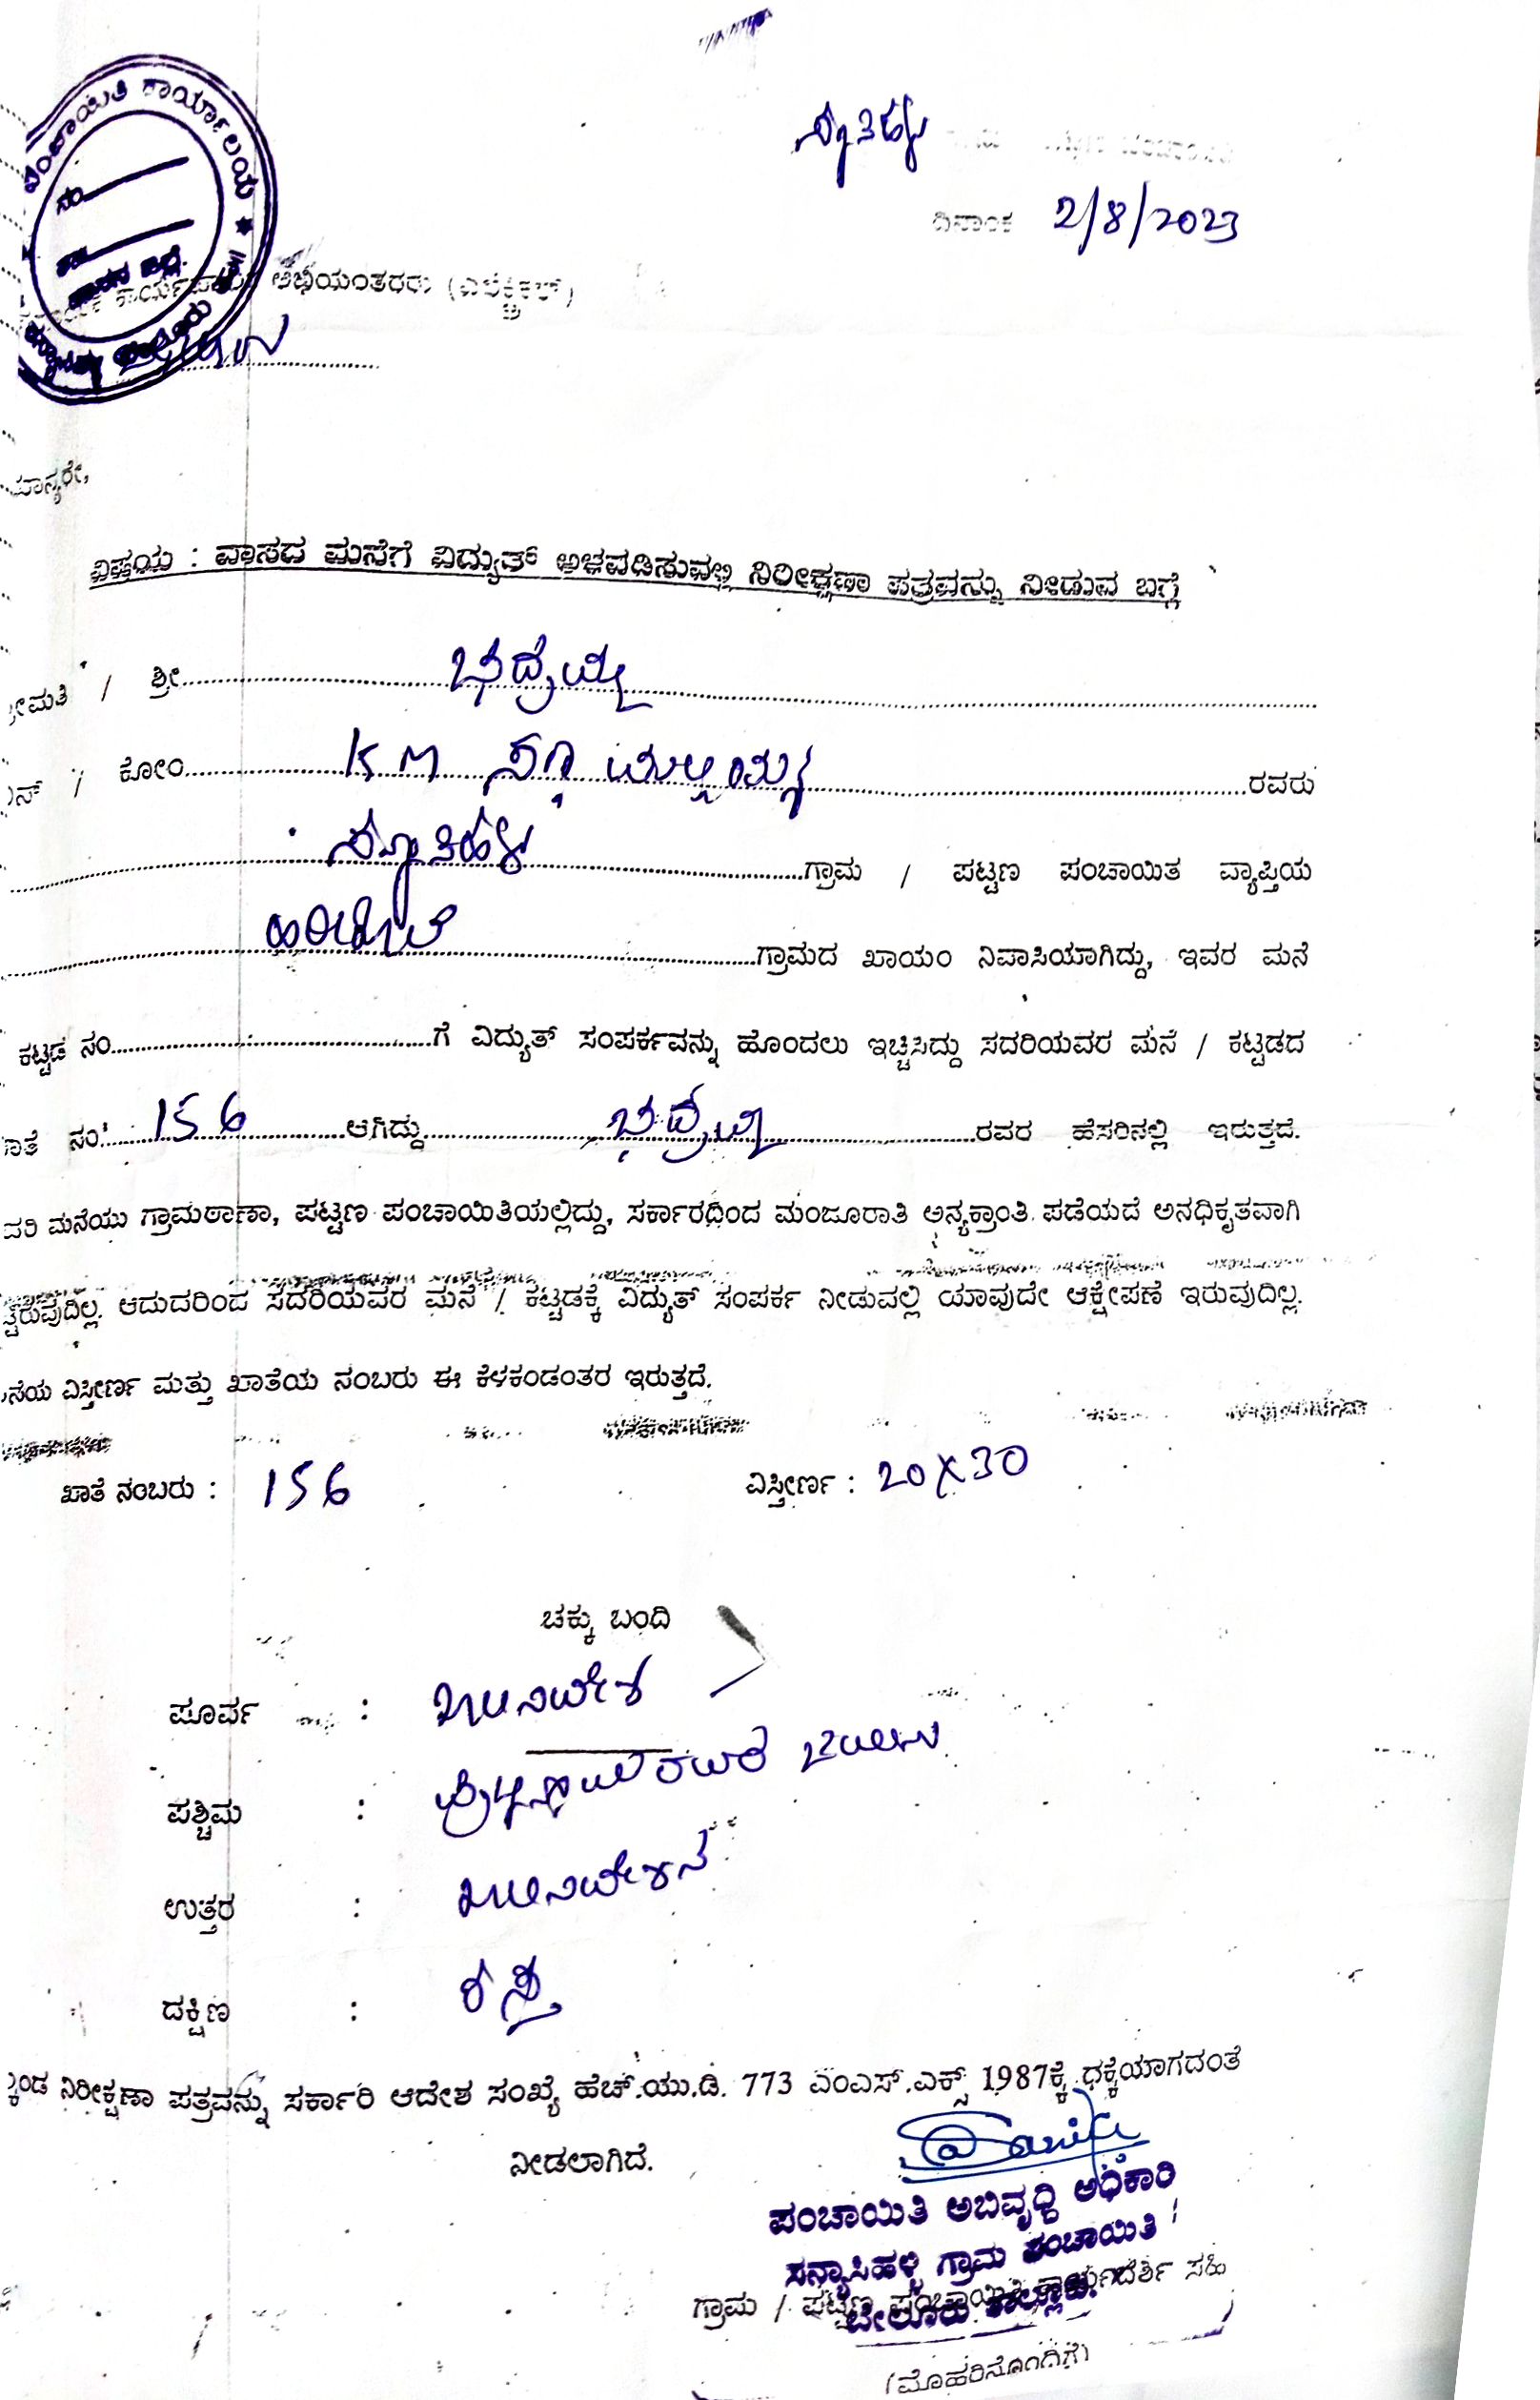 ಪಂಚಾಯಿತಿ ಕಾರ್ಯಾಲಯ ★
ದಿನಾಂಕ 2/8/2023
ಅಭಿಯಂತರರು
ಮಾನ್ಯರೇ,
ವಿಷಯ : ವಾಸದ ಮನೆಗೆ ವಿದ್ಯುತ್ ಅಳವಡಿಸುವಲ್ಲಿ ನಿರೀಕ್ಷಣಾ ಪತ್ರವನ್ನು ನೀಡುವ ಬಗ್ಗೆ
/ ಶ್ರೀ ಭದ್ರಯ್ಯ
/ ಕೋಂ K M ರವರು
ಗ್ರಾಮ / ಪಟ್ಟಣ ಪಂಚಾಯಿತ ವ್ಯಾಪ್ತಿಯ
ಗ್ರಾಮದ ಖಾಯಂ ನಿವಾಸಿಯಾಗಿದ್ದು, ಇವರ ಮನೆ
ಕಟ್ಟಡ ನಂ ಗೆ ವಿದ್ಯುತ್ ಸಂಪರ್ಕವನ್ನು ಹೊಂದಲು ಇಚ್ಚಿಸಿದ್ದು ಸದರಿಯವರ ಮನೆ / ಕಟ್ಟಡದ
ನಂ 156 ಆಗಿದ್ದು ಭದ್ರಯ್ಯ ರವರ ಹೆಸರಿನಲ್ಲಿ ಇರುತ್ತದೆ.
ಮನೆಯು ಗ್ರಾಮಠಾಣಾ, ಪಟ್ಟಣ ಪಂಚಾಯಿತಿಯಲ್ಲಿದ್ದು, ಸರ್ಕಾರದಿಂದ ಮಂಜೂರಾತಿ ಅನ್ಯಕ್ರಾಂತಿ ಪಡೆಯದೆ ಅನಧಿಕೃತವಾಗಿ
ಆದುದರಿಂದ ಸದರಿಯವರ ಮನೆ / ಕಟ್ಟಡಕ್ಕೆ ವಿದ್ಯುತ್ ಸಂಪರ್ಕ ನೀಡುವಲ್ಲಿ ಯಾವುದೇ ಆಕ್ಷೇಪಣೆ ಇರುವುದಿಲ್ಲ.
ವಿಸ್ತೀರ್ಣ ಮತ್ತು ಖಾತೆಯ ನಂಬರು ಈ ಕೆಳಕಂಡಂತರ ಇರುತ್ತದೆ.
ಖಾತೆ ನಂಬರು : 156 ವಿಸ್ತೀರ್ಣ : 20X30
ಚಕ್ಕು ಬಂದಿ
ಪೂರ್ವ :
ಪಶ್ಚಿಮ :
ಉತ್ತರ :
ದಕ್ಷಿಣ : ರಸ್ತೆ
ನಿರೀಕ್ಷಣಾ ಪತ್ರವನ್ನು ಸರ್ಕಾರಿ ಆದೇಶ ಸಂಖ್ಯೆ ಹೆಚ್.ಯು.ಡಿ. 773 ಎಂಎಸ್.ಎಕ್ಸ್ 1987ಕ್ಕೆ ಧಕ್ಕೆಯಾಗದಂತೆ
ನೀಡಲಾಗಿದೆ.
ಪಂಚಾಯಿತಿ ಅಬಿವೃಧ್ಧಿ ಅಧಿಕಾರಿ
ಸನ್ಯಾಸಿಹಳ್ಳಿ ಗ್ರಾಮ ಪಂಚಾಯಿತಿ
ಬೇಲೂರು ತಾಲ್ಲೂಕು.
ಗ್ರಾಮ / ಪಟ್ಟಣ ಪಂಚಾಯಿತಿ ಕಾರ್ಯದರ್ಶಿ ಸಹಿ
(ಮೊಹರಿನೊಂದಿಗೆ)